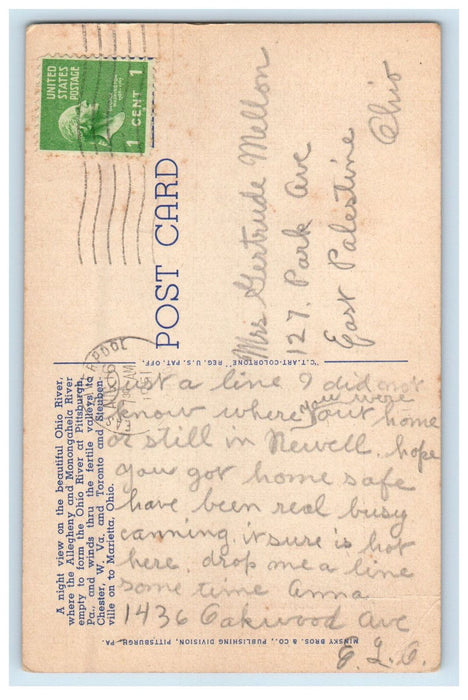 A night view on the beautiful Ohio River,
where the Allegheny and Monongahela River
empty to form the Ohio River at Pittsburgh,
Pa., and winds thru the fertile valleys to
Chester, W. Va. and Toronto and Steuben-
ville on to Marietta, Ohio.
UNITED
STATES
POSTAGE
1 CENT 1
POST CARD
Mrs Gertrude Mellon
127. Park Ave
East Palestine
Ohio
"C.T. ART-COLORTONE" REG. U.S. PAT. OFF.
Just a line I did not
know where you were out home
or still in Newell. hope
you got home safe
have been real busy
canning. it sure is hot
here. drop me a line
some time Anna
1436 Oakwood Ave
E. L. O.
MINSKY BROS. & CO., PUBLISHING DIVISION, PITTSBURGH, PA.